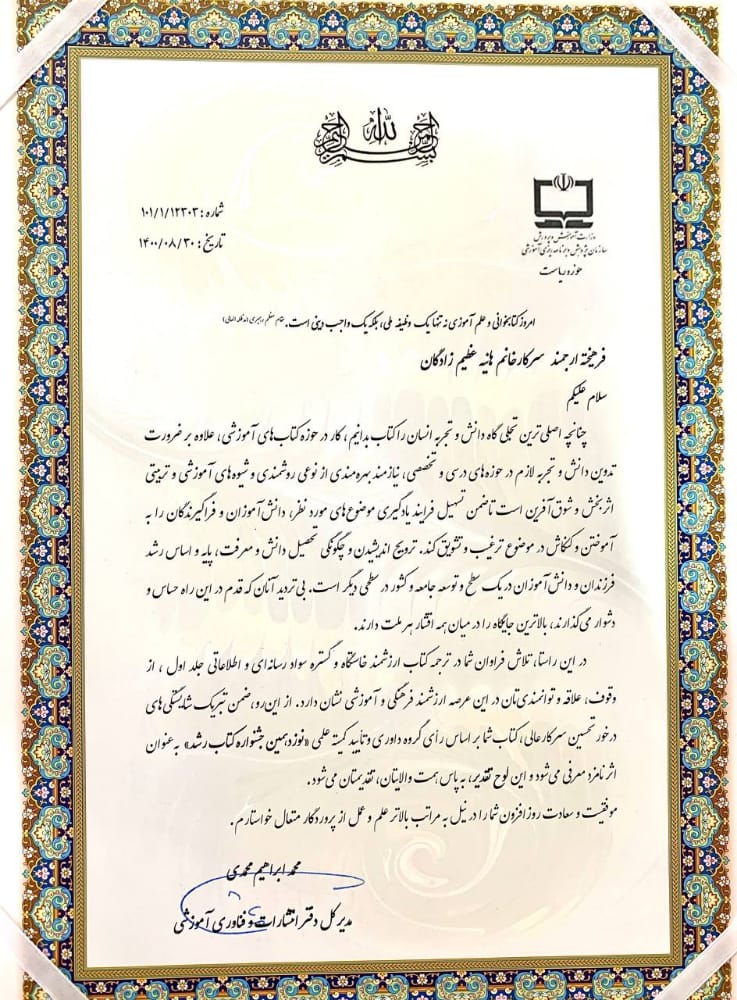 بسم الله الرحمن الرحیم
شماره: ۱۰۱/۱/۱۲۳۰۳
تاریخ: ۱۴۰۰/۰۸/۳۰
وزارت آموزش و پرورش
سازمان پژوهش و برنامه‌ریزی آموزشی
حوزه ریاست
امروز کتابخوانی و علم آموزی نه تنها یک وظیفه ملی، بلکه یک واجب دینی است. مقام معظم رهبری (مدظله العالی)
فرهیخته ارجمند سرکار خانم هانیه عظیم زادگان
سلام علیکم
چنانچه اصلی‌ترین تجلی گاه دانش و تجربه انسان را کتاب بدانیم، کار در حوزه کتاب‌های آموزشی، علاوه بر ضرورت
تدوین دانش و تجربه لازم در حوزه‌های درسی و تخصصی، نیازمند بهره‌مندی از نوعی روشمندی و شیوه‌های آموزشی و تربیتی
اثربخش و شوق‌آفرین است تا ضمن تسهیل فرایند یادگیری موضوع‌های مورد نظر، دانش‌آموزان و فراگیرندگان را به
آموختن و کنکاش در موضوع ترغیب و تشویق کند. ترویج اندیشیدن و چگونگی تحصیل دانش و معرفت، پایه و اساس رشد
فرزندان و دانش‌آموزان در یک سطح و توسعه جامعه و کشور در سطحی دیگر است. بی‌تردید آنان که قدم در این راه حساس و
دشوار می‌گذارند، بالاترین جایگاه را در میان همه اقشار هر ملت دارند.
در این راستا، تلاش فراوان شما در ترجمه کتاب ارزشمند خاستگاه و گستره سواد رسانه‌ای و اطلاعاتی جلد اول، از
وقوف، علاقه و توانمندی‌تان در این عرصه ارزشمند فرهنگی و آموزشی نشان دارد. از این‌رو، ضمن تبریک شایستگی‌های
درخور تحسین سرکار عالی، کتاب شما بر اساس رأی گروه داوری و تأیید کمیته علمی «نوزدهمین جشنواره کتاب رشد» به عنوان
اثر نامزد معرفی می‌شود و این لوح تقدیر، به پاس همت والایتان، تقدیمتان می‌شود.
موفقیت و سعادت روزافزون شما را در نیل به مراتب بالاتر علم و عمل از پروردگار متعال خواستارم.
محمد ابراهیم محمدی
مدیر کل دفتر انتشارات و فناوری آموزشی